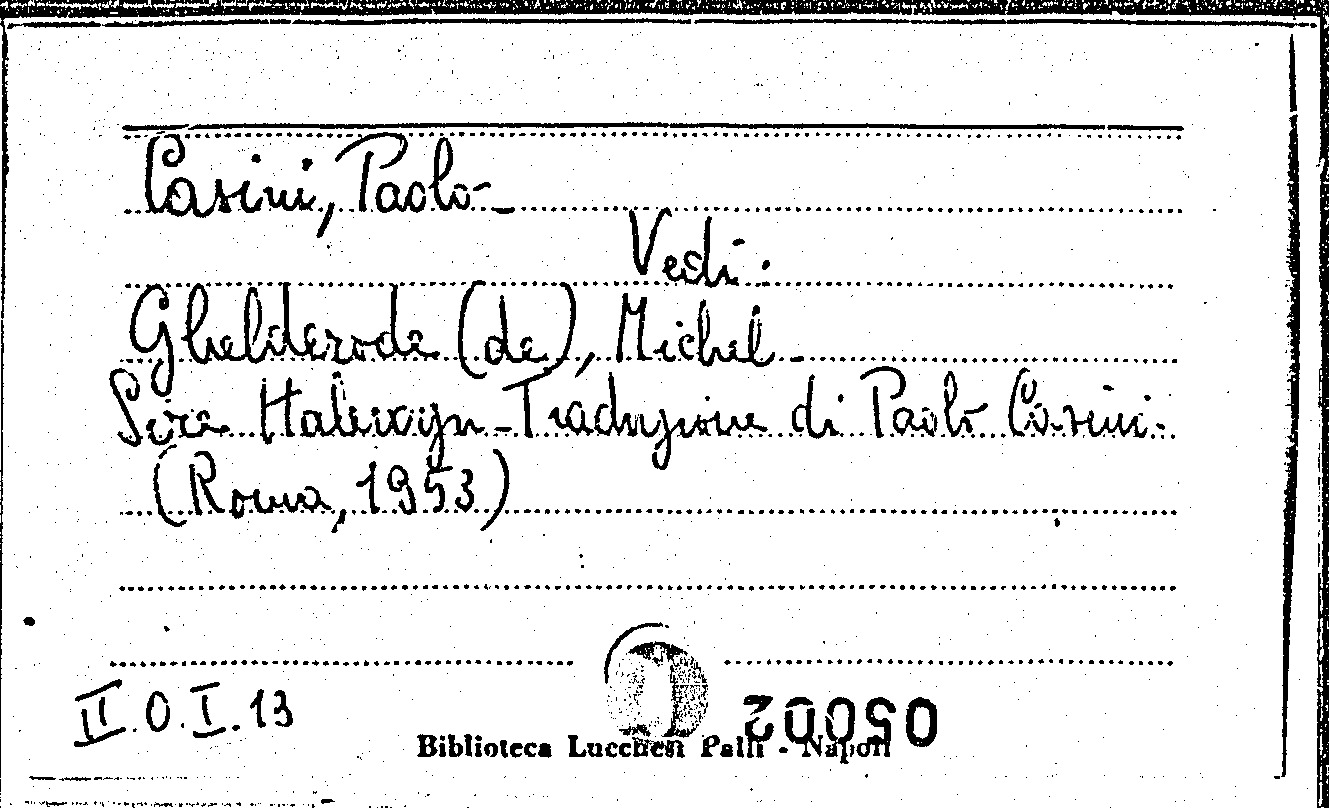 Casini, Paolo-
Vedi:
Ghelderode (de), Michel-
Sire Halewyn-Traduzione di Paolo Casini-
(Roma, 1953)
II.O.I.13
05002
Biblioteca Lucchesi Palli - Napoli